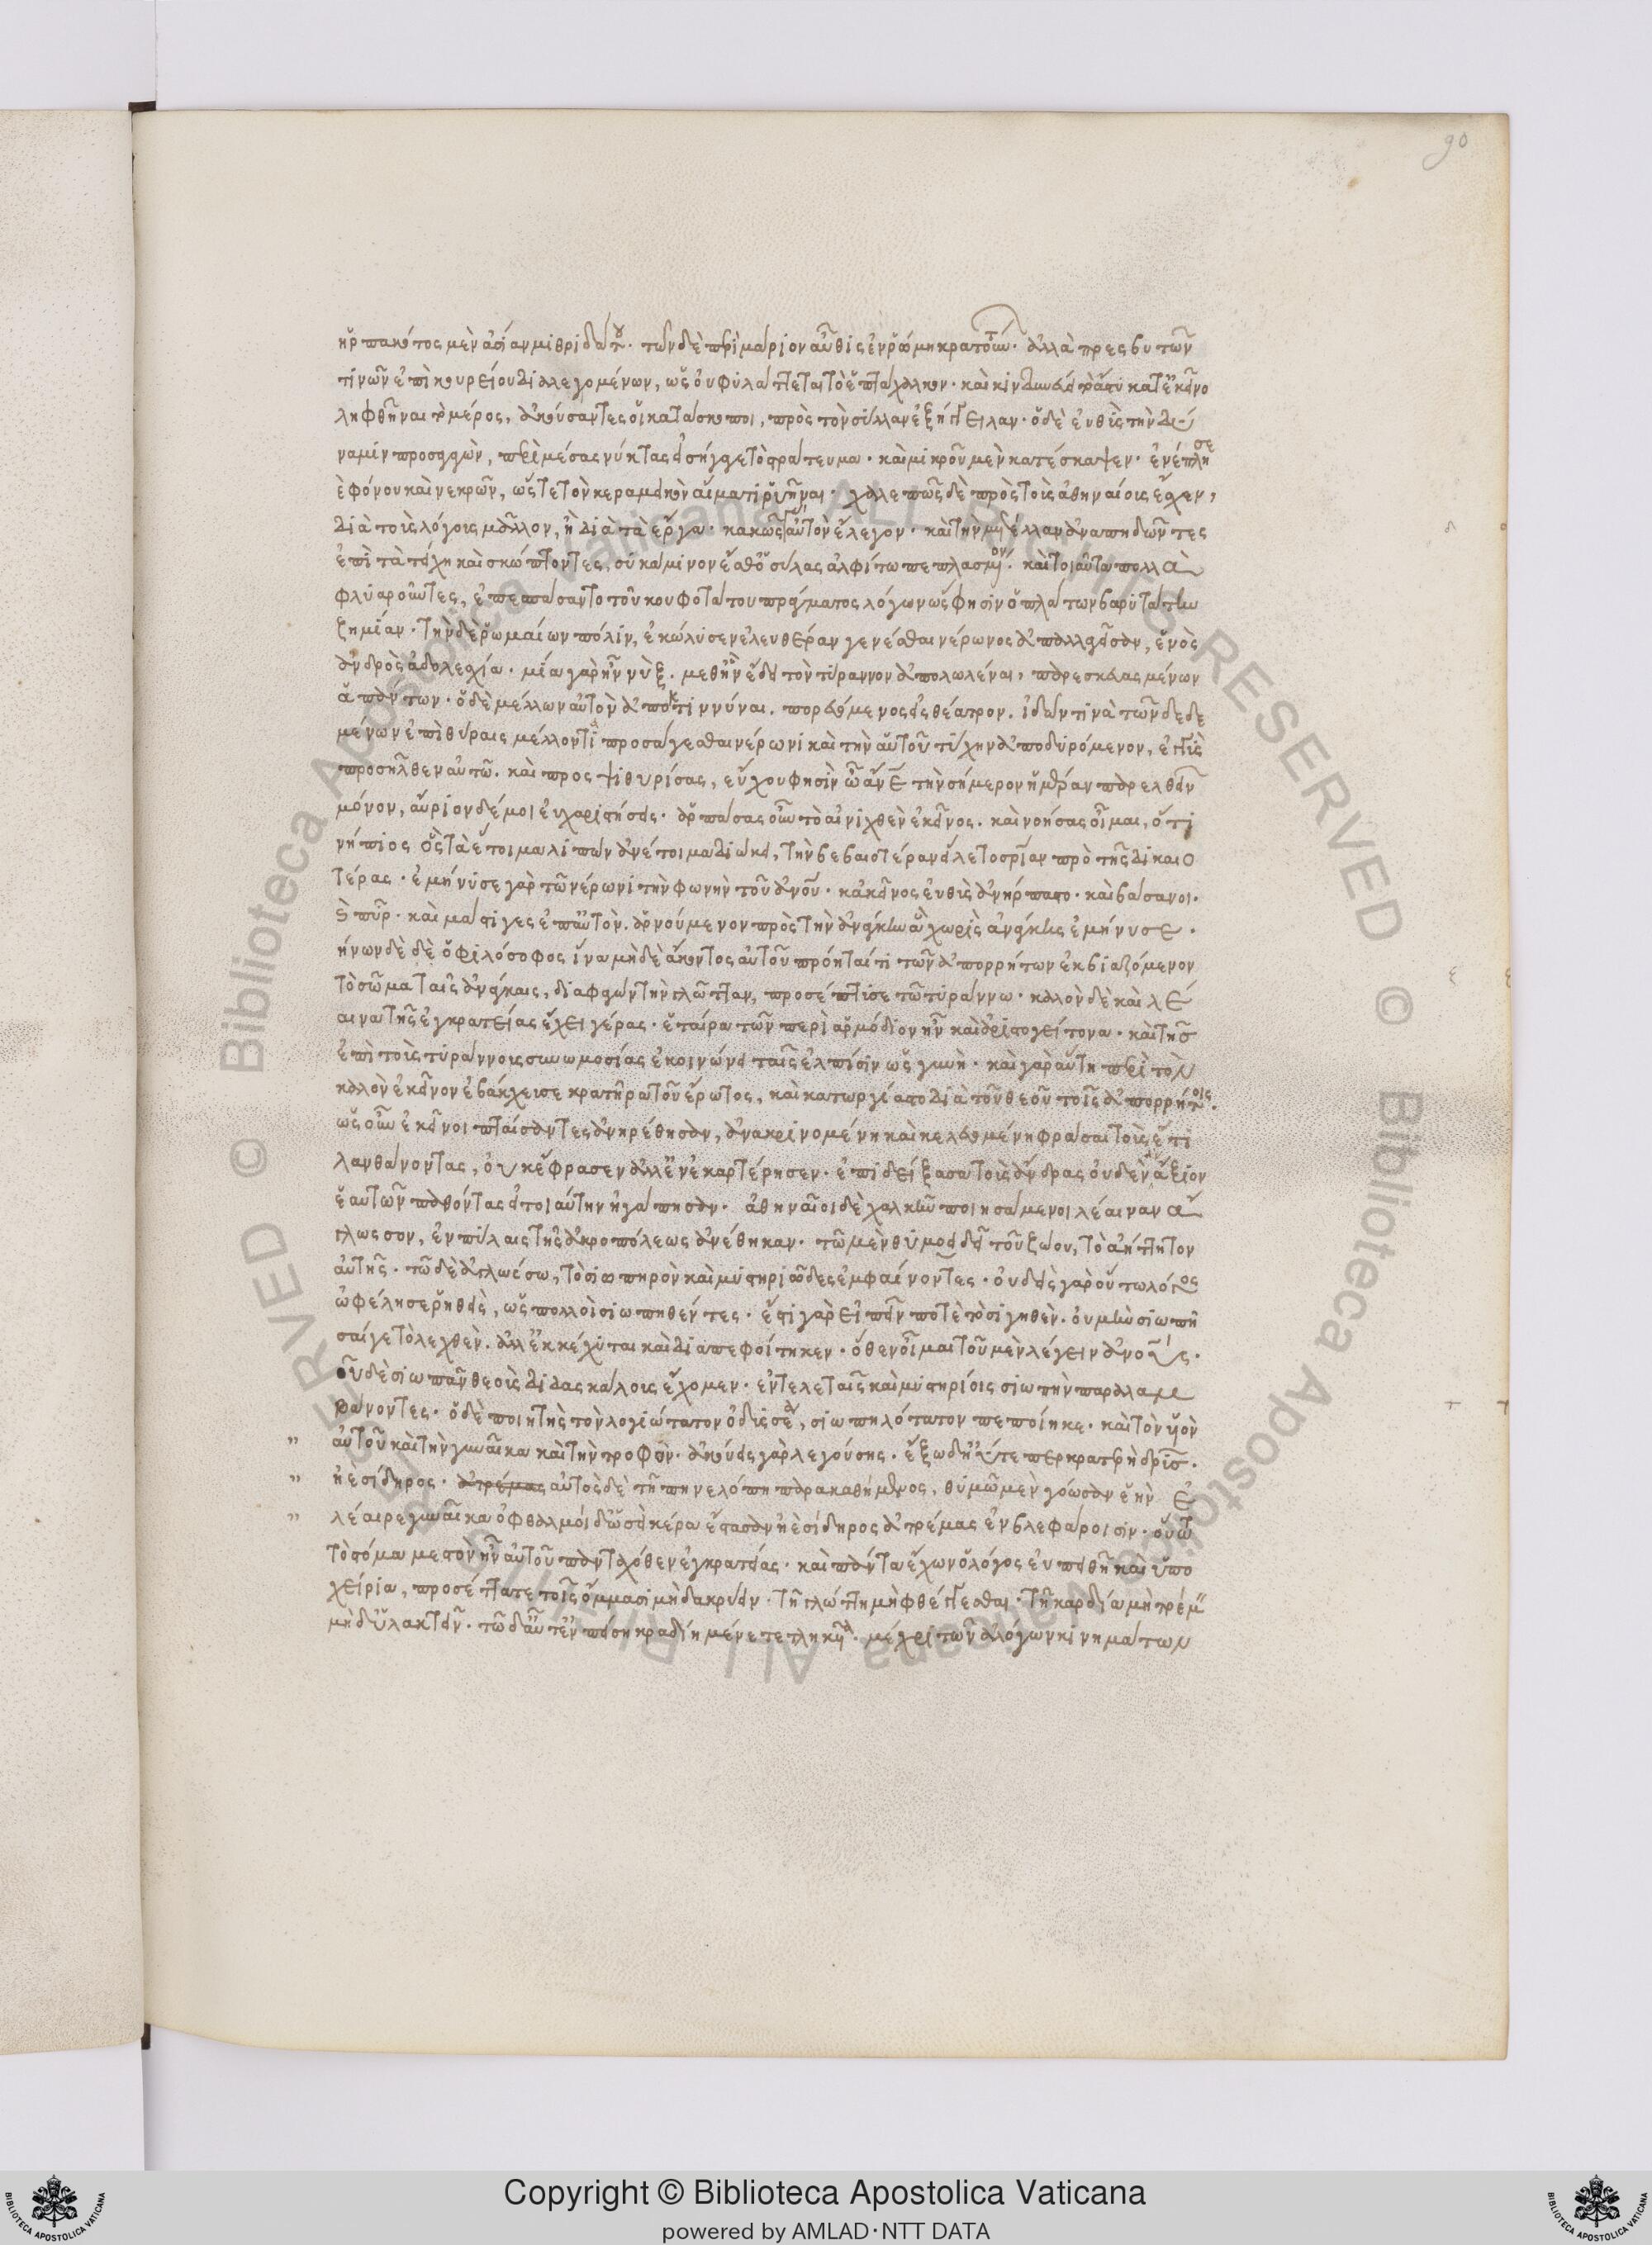 90
ἡρπακότος μὲν ἀσίαν μιθριδάτου. τῶν δὲ περὶ μάριον αὖθις ἐν ῥώμη κρατούντων. ἀλλὰ πρεσβυτῶν
τινῶν ἐπὶ κουρείου διαλεγομένων, ὡς οὐ φυλάττεται τὸ ἑπτάχαλκον. καὶ κινδυνεύει τὸ ἄστυ κατ' ἐκεῖνο
ληφθῆναι τὸ μέρος, ἀκούσαντες οἱ κατάσκοποι, πρὸς τὸν σύλλαν ἐξήγγειλαν. ὁ δὲ εὐθὺς τὴν δύ
ναμιν προσαγαγὼν, περὶ μέσας νύκτας εἰσήγαγε τὸ στράτευμα. καὶ μικροῦ μὲν κατέσκαψεν. ἐνέπλησε
φόνου καὶ νεκρῶν, ὥστε τὸν κεραμεικὸν αἵματι ῥυῆναι. χαλεπῶς δὲ πρὸς τοὺς ἀθηναίους ἔσχεν,
διὰ τοὺς λόγους μᾶλλον, ἢ διὰ τὰ ἔργα. κακῶς γὰρ αὐτὸν ἔλεγον. καὶ τὴν μετέλλαν ἀναπηδῶντες
ἐπὶ τὰ τείχη καὶ σκώπτοντες, συκάμινον ἔσθ' ὁ σύλας ἀλφίτω πεπλασμένον. καὶ τοιαῦτα πολλὰ
φλυαροῦντες, ἐπεσπάσαντο τοῦ κουφοτάτου πράγματος λόγων ὥς φησιν ὁ πλάτων βαρυτάτην
ζημίαν. τὴν δὲ ῥωμαίων πόλιν, ἐκώλυσεν ἐλευθέραν γενέσθαι νέρωνος ἀπαλλαγεῖσαν, ἑνὸς
ἀνδρὸς ἀδολεσχία. μία γὰρ ἦν νὺξ. μεθ' ἣν ἔδει τὸν τύραννον ἀπολωλέναι, παρεσκευασμένων
ἁπάντων. ὁ δὲ μέλλων αὐτὸν ἀποκτιννύναι. πορευόμενος εἰς θέατρον. ἰδών τινα τῶν δεδε
μένων ἐπὶ θύραις μέλλοντα προσάγεσθαι νέρωνι καὶ τὴν αὑτοῦ τύχην ἀποδυρόμενον, ἐγγὺς
προσῆλθεν αὐτῶ. καὶ προσψιθυρίσας, εὔχου φησὶν ὦ ἄνθρωπε τὴν σήμερον ἡμέραν παρελθεῖν
μόνον, αὔριον δέ μοι εὐχαριστήσεις. ἁρπάσας οὖν τὸ αἰνιχθὲν ἐκεῖνος. καὶ νοήσας οἶμαι, ὅτι
νήπιος ὃς τὰ ἕτοιμα λιπὼν ἀνέτοιμα διώκει, τὴν βεβαιοτέραν εἵλετο σωτηρίαν πρὸ τῆς δικαιο
τέρας. ἐμήνυσε γὰρ τῶ νέρωνι τὴν φωνὴν τοῦ ἀνθρώπου. κἀκεῖνος εὐθὺς ἀνήρπαστο. καὶ βάσανοι.
καὶ πῦρ. καὶ μάστιγες ἐπ' αὐτὸν. ἀρνούμενον πρὸς τὴν ἀνάγκην ἃ χωρὶς ἀνάγκης ἐμήνυσε.
ζήνων δὲ ὁ φιλόσοφος ἵνα μηδὲ ἄκοντος αὐτοῦ πρόηταί τι τῶν ἀπορρήτων ἐκβιαζόμενον
τὸ σῶμα ταῖς ἀνάγκαις, διαφαγὼν τὴν γλῶτταν, προσέπτυσε τῶ τυράννω. καλὸν δὲ καὶ λέ
αινα τῆς ἐγκρατείας ἔχει γέρας. ἑταίρα τῶν περὶ ἁρμόδιον ἦν καὶ ἀριστογείτονα. καὶ τῆς
ἐπὶ τοὺς τυράννους συνωμοσίας ἐκοινώνει ταῖς ἐλπίσιν ὡς γυνὴ. καὶ γὰρ αὕτη περὶ τὸν
καλὸν ἐκεῖνον ἐβάκχευσε κρατῆρα τοῦ ἔρωτος, καὶ κατωργίαστο διὰ τοῦ θεοῦ τοῖς ἀπορρήτοις.
ὡς οὖν ἐκεῖνοι πταίσαντες ἀνηρέθησαν, ἀνακρινομένη καὶ κελευομένη φράσαι τοὺς ἔτι
λανθάνοντας, οὐκ ἔφρασεν ἀλλ' ἐνεκαρτέρησεν. ἐπιδείξασα τοὺς ἄνδρας οὐδὲν ἀνάξιον
ἑαυτῶν παθόντας εἰ τοιαύτην ἠγάπησαν. ἀθηναῖοι δὲ χαλκῆν ποιησάμενοι λέαιναν ἄ
γλωσσον, ἐν πύλαις τῆς ἀκροπόλεως ἀνέθηκαν. τῶ μὲν θυμοειδεῖ τοῦ ζώου, τὸ ἀήττητον
αὐτῆς. τῶ δὲ ἀγλώσσω, τὸ σιωπηρὸν καὶ μυστηριῶδες ἐμφαίνοντες. οὐδεὶς γὰρ οὕτω λόγος
ὠφέλησε ῥηθεὶς, ὡς πολλοὶ σιωπηθέντες. ἔστι γὰρ εἰπεῖν ποτὲ τὸ σιγηθὲν. οὐ μὴν σιωπῆ
σαί γε τὸ λεχθὲν. ἀλλ' ἐκκέχυται καὶ διαπεφοίτηκεν. ὅθεν οἶμαι τοῦ μὲν λέγειν ἀνθρώπους.
τοῦ δὲ σιωπᾶν θεοὺς διδασκάλους ἔχομεν. ἐν τελεταῖς καὶ μυστηρίοις σιωπὴν παραλαμ
βάνοντες. ὁ δὲ ποιητὴς τὸν λογιώτατον ὀδυσσέα, σιωπηλότατον πεποίηκε. καὶ τὸν υἱὸν
αὐτοῦ καὶ τὴν γυναῖκα καὶ τὴν τροφόν. ἀκούεις γὰρ λεγούσης. ἕξω δ' ἠΰτε περ κρατερὴ δρῦς.
ἠὲ σίδηρος. ἀτρέμας αὐτὸς δὲ τῆ πηνελόπη παρακαθήμενος, θυμῶ μὲν γόωσαν ἑὴν ἐ
λέαιρε γυναῖκα ὀφθαλμοὶ δ' ὡσεὶ κέρα ἕστασαν ἠὲ σίδηρος ἀτρέμας ἐν βλεφάροισιν. οὕτω
τὸ σῶμα μεστὸν ἦν αὐτοῦ πανταχόθεν ἐγκρατείας. καὶ πάντα ἔχων ὁ λόγος εὐπειθῆ καὶ ὑπο
χείρια, προσέταττε τοῖς ὄμμασι μὴ δακρύειν. τῆ γλώττη μὴ φθέγγεσθαι. τῆ καρδία μὴ τρέμειν
μηδ' ὑλακτεῖν. τῶ δ' αὖτ' ἐν πείση κραδίη μένε τετληκυῖα. μέχρι τῶν ἀλόγων κινημάτων
Copyright © Biblioteca Apostolica Vaticana
powered by AMLAD·NTT DATA